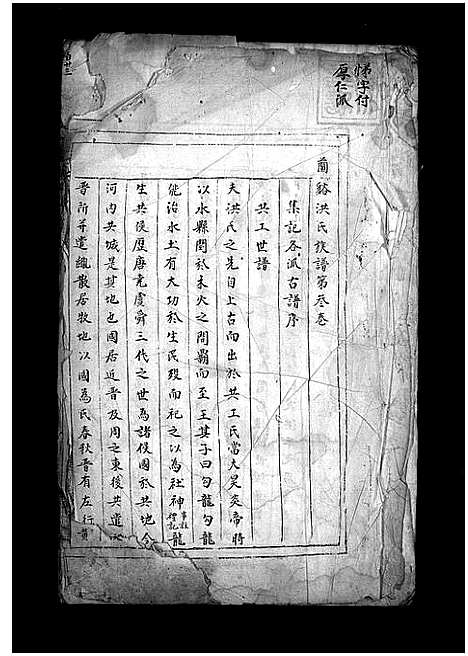 悌字付
厚仁派
蘭谿洪氏族譜第叁卷
集記各派古譜序
共工世譜
夫洪氏之先自上古而出於共工氏當大昊炎帝時
以水縣閏於木火之間霸而至王其子曰勾龍勾龍
能治水土有大功於生民歿而祀之以為社神事在禮記龍
生共後歷唐堯虞舜三代之世為諸侯國於共地今
河内共城是其地也國居近晉及周之東後共遣
晉所并遺織散居牧地以國為氏春秋晉有左行